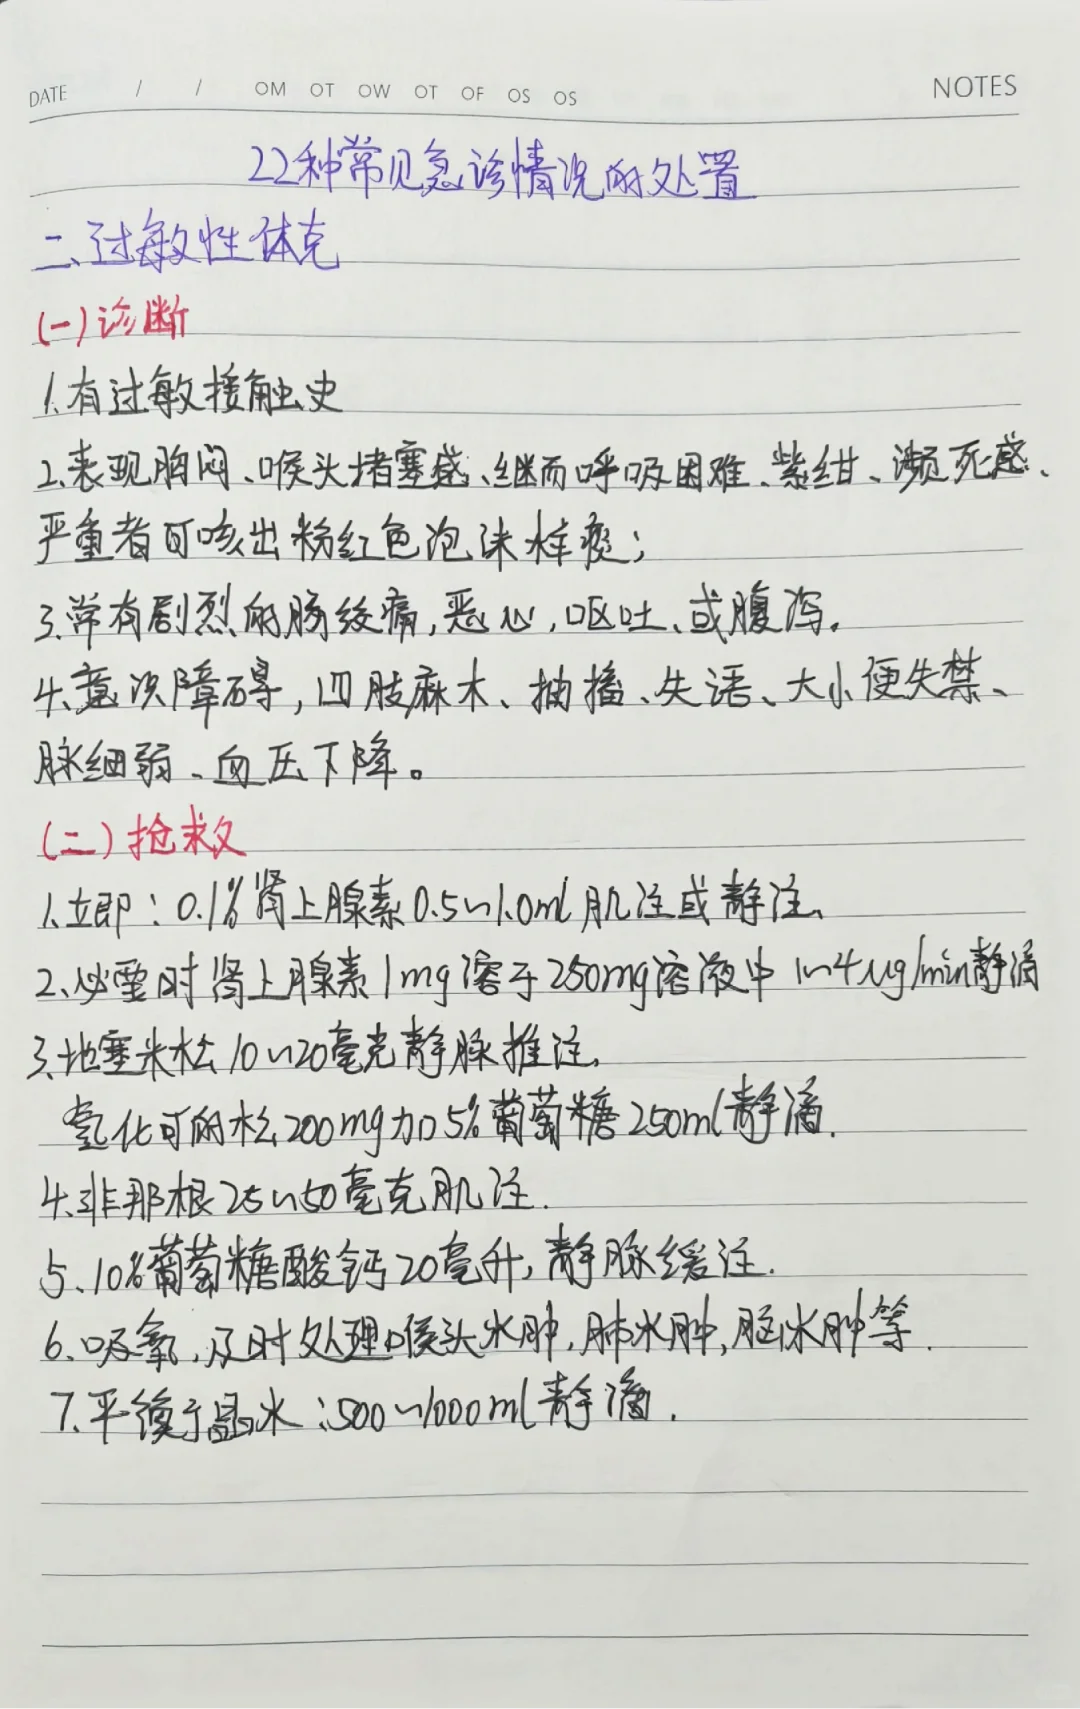 DATE / / OM OT OW OT OF OS OS NOTES
22种常见急诊情况的处置
二、过敏性体克
(一)诊断
1.有过敏接触史
2.表现胸闷、喉头堵塞感、继而呼吸困难、紫绀、濒死感、
严重者可咳出粉红色泡沫样痰;
3.常有剧烈的肠绞痛,恶心,呕吐、或腹泻.
4.意识障碍,四肢麻木、抽搐、失语、大小便失禁、
脉细弱、血压下降。
(二)抢救
1.立即:0.1%肾上腺素0.5~1.0ml肌注或静注、
2.必要时肾上腺素1mg溶于250mg溶液中 1~4μg/min静滴
3.地塞米松10~20毫克静脉推注、
氢化可的松200mg加5%葡萄糖250ml静滴.
4.非那根25~50毫克肌注.
5.10%葡萄糖酸钙20毫升,静脉缓注.
6.吸氧,及时处理喉头水肿,肺水肿,脑水肿等.
7.平衡于晶水:500~1000ml静滴.